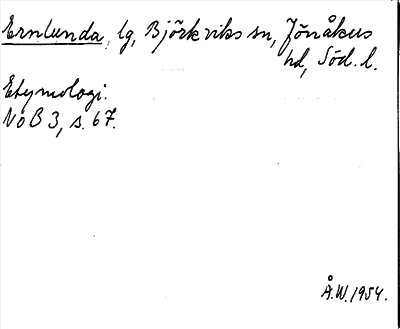 Ernlunda, lg, Björkviks sn, Jönåkers
hd, Söd. l.
Etymologi.
NoB 3, s. 67.
Å.W. 1954.